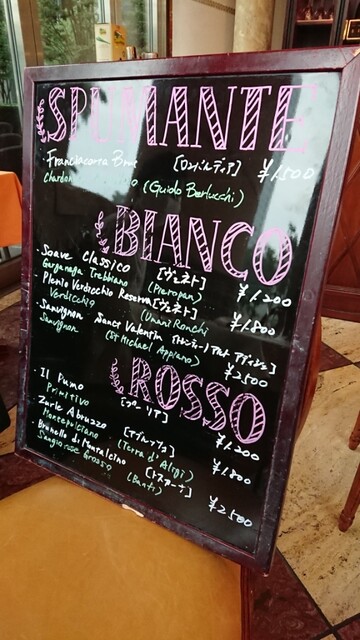 SPUMANTE
・Franciacorta Brut [ロンバルディア] ¥1,500
Chardon (Guido Berlucchi)
BIANCO
・Soave Classico [ヴェネト] ¥1,200
Garganega Trebbiano (Pieropan)
・Plenio Verdicchio Reserva [ヴェネト] ¥1,800
Verdicchio (Umani Ronchi)
・Sauvignon Sanct Valentin ¥2,500
Sauvignon (St Michael Appiano)
ROSSO
・Il Fumo [プーリア] ¥1,200
Primitivo
・Zarle Abruzzo [アブルッツォ] ¥1,800
Montepulciano (Terra d'Aligi)
・Brunello di Montalcino [トスカーナ] ¥2,500
Sangiovese Grosso (Banfi)